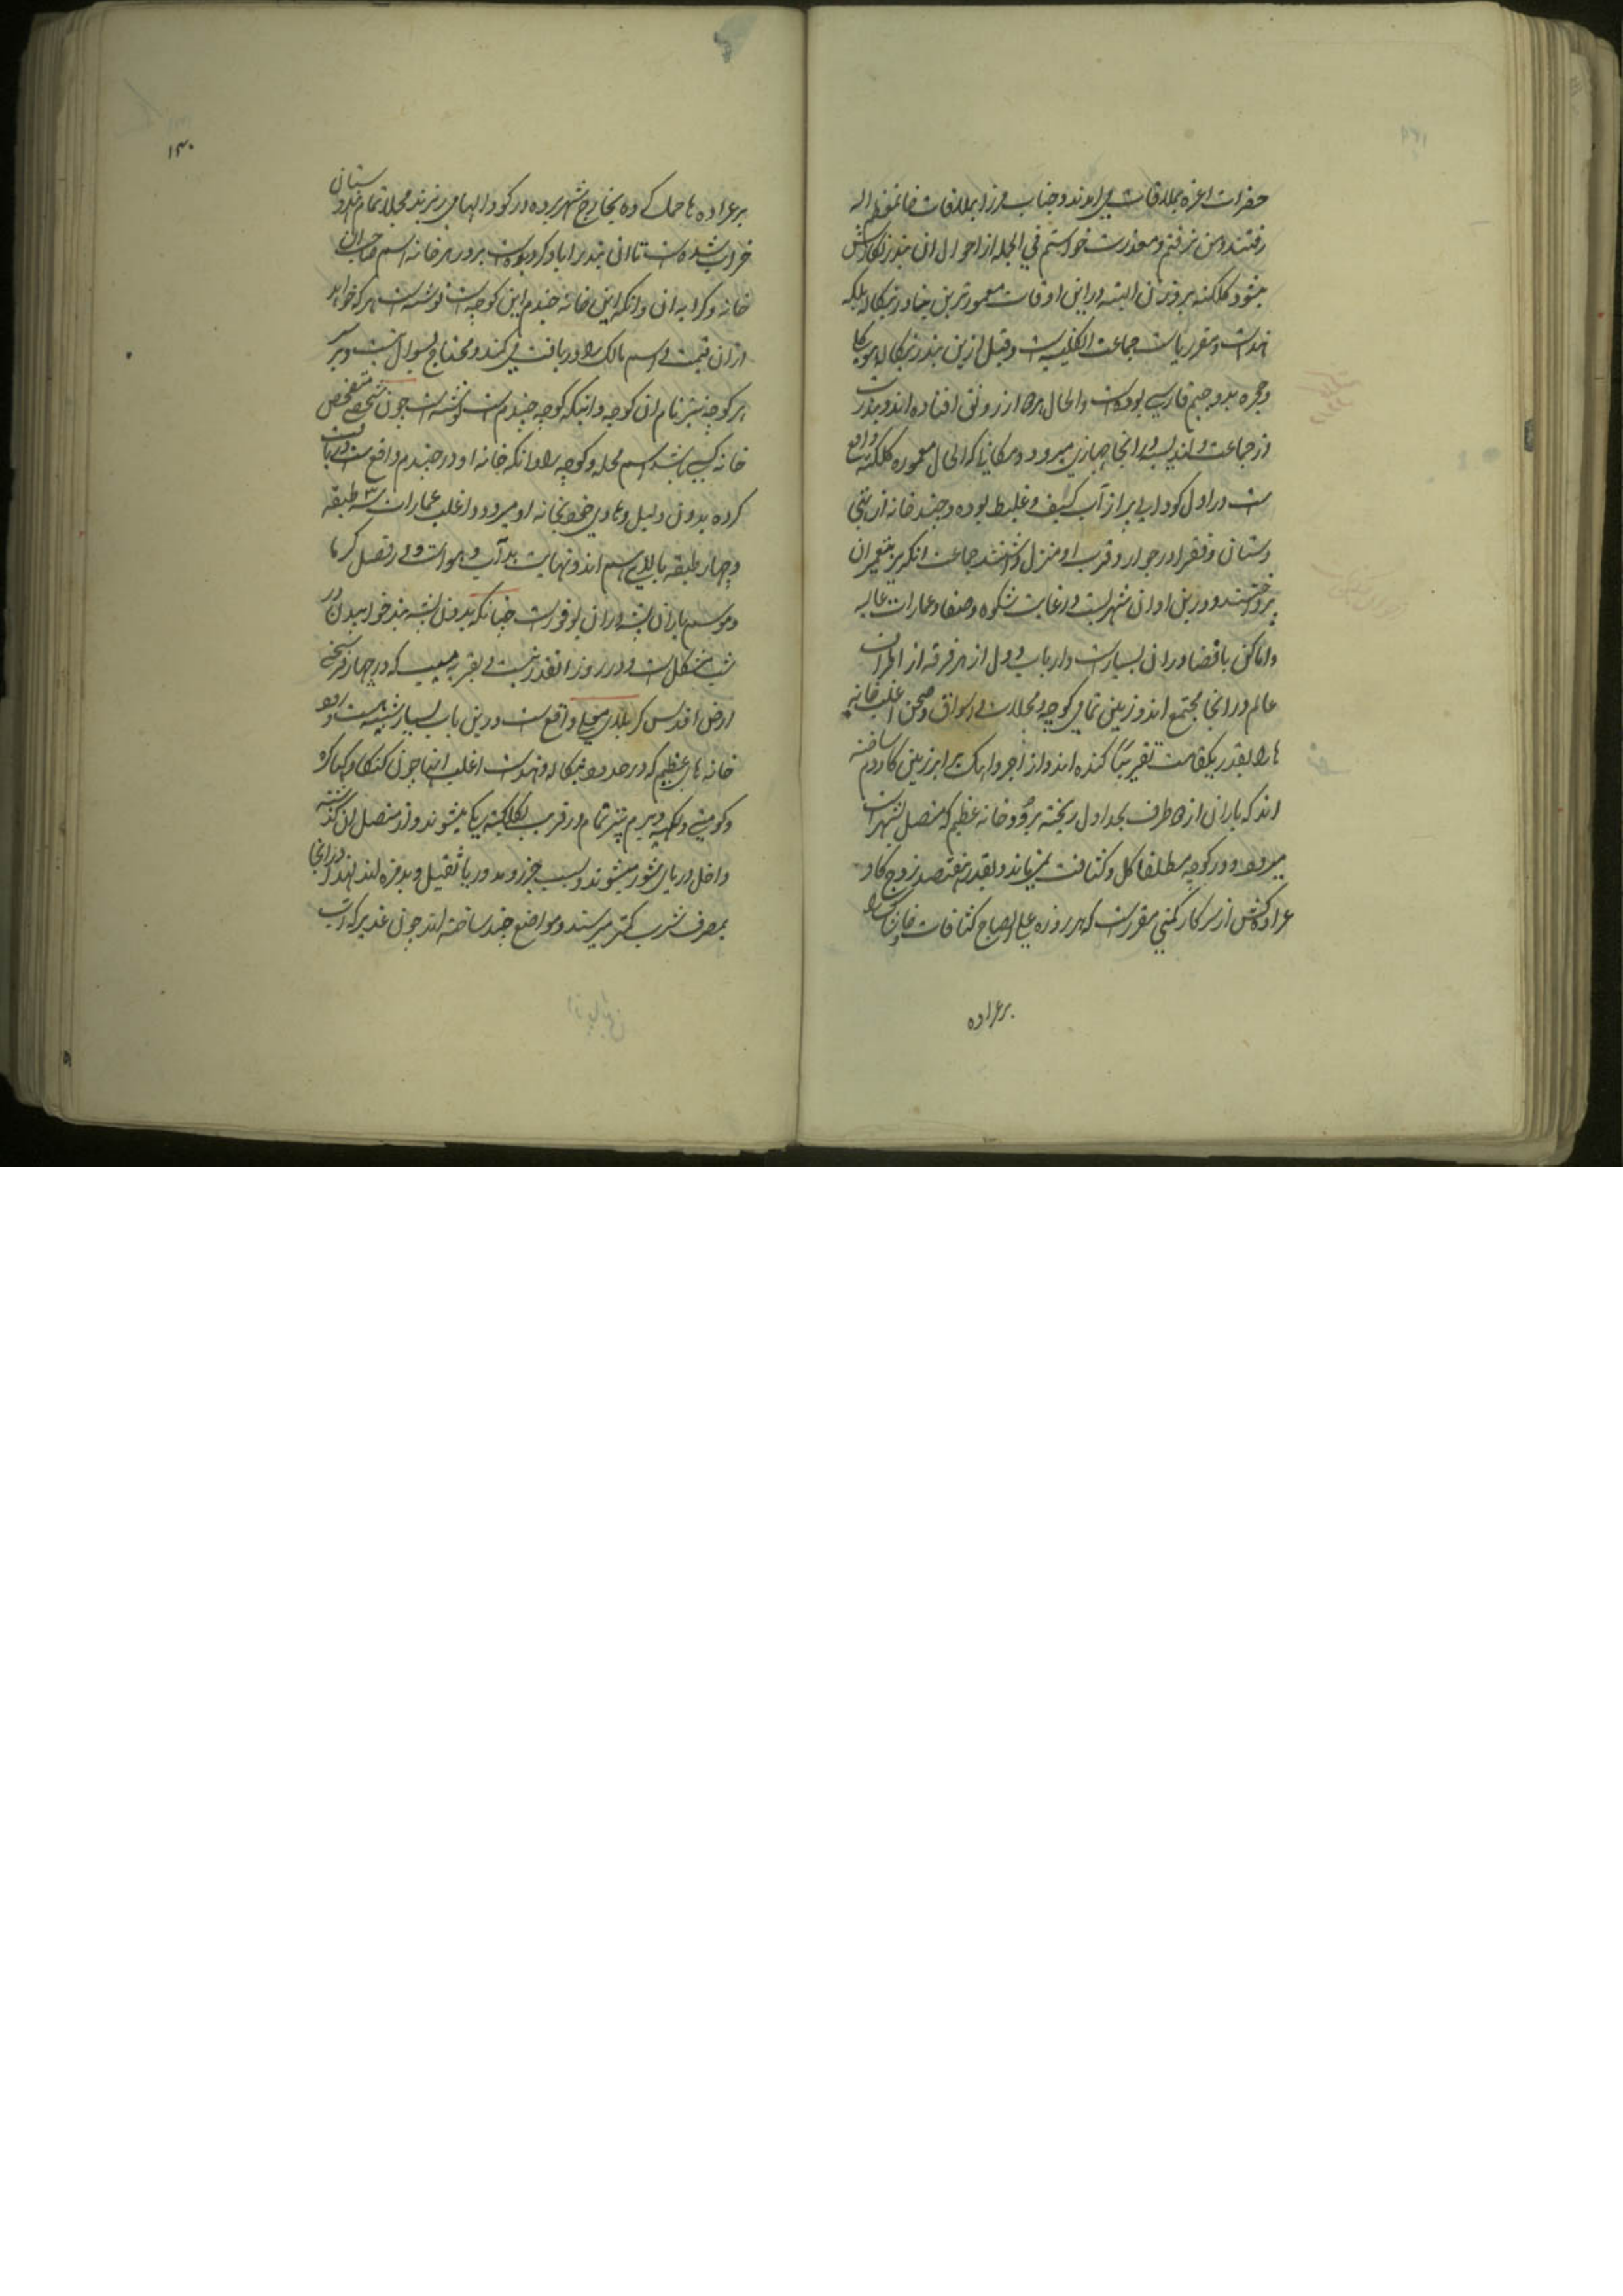 حضرات اعزه بملاقات می آمدند و جناب میرزا بملاقات خانمعظم اله
رفتند و من نرفتم و معذرت خواستم فی الجمله از احوال ان بندر نگارش
میشود کلکته بر وزن البته در این اوقات معمورترین بنادر بنکاله بلکه
هند است و مقر ریاست جماعت انکلیسیه است و قبل ازین بندر بنکاله هوکلی
و بوده است و الحال از رونق افتاده اند و بندرت
از جماعت ولندیس در انجا جهازی میرود و مکانی که الحال معموره کلکته واقع
است در اول کودالی پر از آب کثیف و غلیظ بوده و چند خانه از
و فقرا در جوار و قرب او منزل داشتند جماعت انکریز بتعمیر ان
پرداختند و درین اوان شهریست در غایت شکوه و صفا و عمارات عالیه
و اماکن با فضا در ان بسیار است و ارباب دول از هر فرقه از اطراف
عالم در انجا مجتمع اند و زمین تمامی کوچه و محلات و اسواق و صحن اغلب خانه
ها را بقدر یکقامت تقریبا کنده اند و از اجر و اهک برابر زمین ساخته
اند که باران از اطراف بجداول ریخته برودخانه عظیم که متصل بشهر است
میرود و در کوچه مطلقا گل و کثافت نمیماند و بقدر هفتصد زوج کاو
عراده کش از سرکار کمپنی مقرر است که هر روزه علی الصباح کثافات خانها را
بر عراده
۱۳۰
بر عراده ها حمل کرده بخارج شهر برده در کودالها می ریزند مجملا تمام هندوستان
خراب شده است تا ان بندر آباد کردیده است بر در هر خانه اسم صاحب ان
خانه و کرایه ان و انکه این خانه چندم این کوچه است نوشته است هر که خواهد
از ان قیمت و اسم مالک را دریافت می کند و محتاج بسوال نیست و بر سر
هر کوچه نیز نام ان کوچه و اینکه کوچه چندم است نوشته است چون شخصی متفحص
خانه کسی باشد اسم محله و کوچه را و انکه خانه او در چندم واقع است دریافت
کرده بدون دلیل و هادی خود بخانه او میرود و اغلب عمارات سه طبقه
و چهار طبقه بالای هم اند و نهایت بد آب و هوا است و در فصل کرما
و موسم باران پشه در ان بوفور است چنانکه بدون پشه بند خوابیدن در
شب مشکل است و در روز انقدر نیست و بقریه مسیب که در چهار فرسخی
ارض اقدس کربلای معلی واقع است درین باب بسیار شبیه است و رود
خانه های عظیم که در حدود بنکاله و هند است اغلب انها چون کنکا و کهاکره
و کومتی و تمام در قرب کلکته یکی میشوند و از متصل ان کذشته
داخل دریای شور میشوند و بسبب جزر و مد دریا ثقیل و بدمزه اند لهذا در انجا
بمصرف شرب کمتر میرسند و مواضع چند ساخته اند چون غدیر که آب